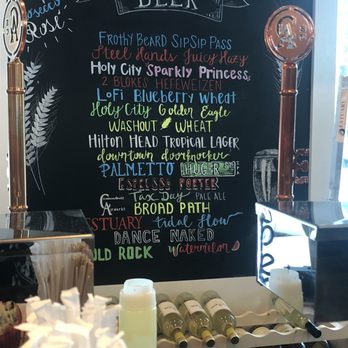 BEER
PROSECCO
ROSÉ
FROTHY BEARD SIPSIP PASS
Steel Hands Juicy Hazy
HOLY CITY SPARKLY PRINCESS
2 BLOKES HEFEWEIZEN
LOFI BLUEBERRY WHEAT
Holy City Golden Eagle
WASHOUT WHEAT
HILTON HEAD TROPICAL LAGER
downtown doorknocker
PALMETTO HUGER ST.
ESPRESSO PORTER
TAX DAY PALE ALE
BROAD PATH
ESTUARY tidal flow
DANCE NAKED
OLD ROCK WATERMELON